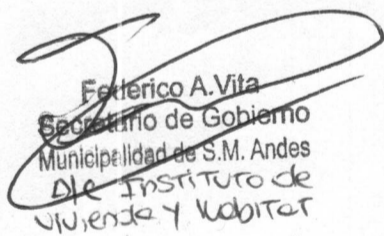 Federico A. Vita
Secretario de Gobierno
Municipalidad de S.M. Andes
A/c Instituto de
Vivienda y Habitat